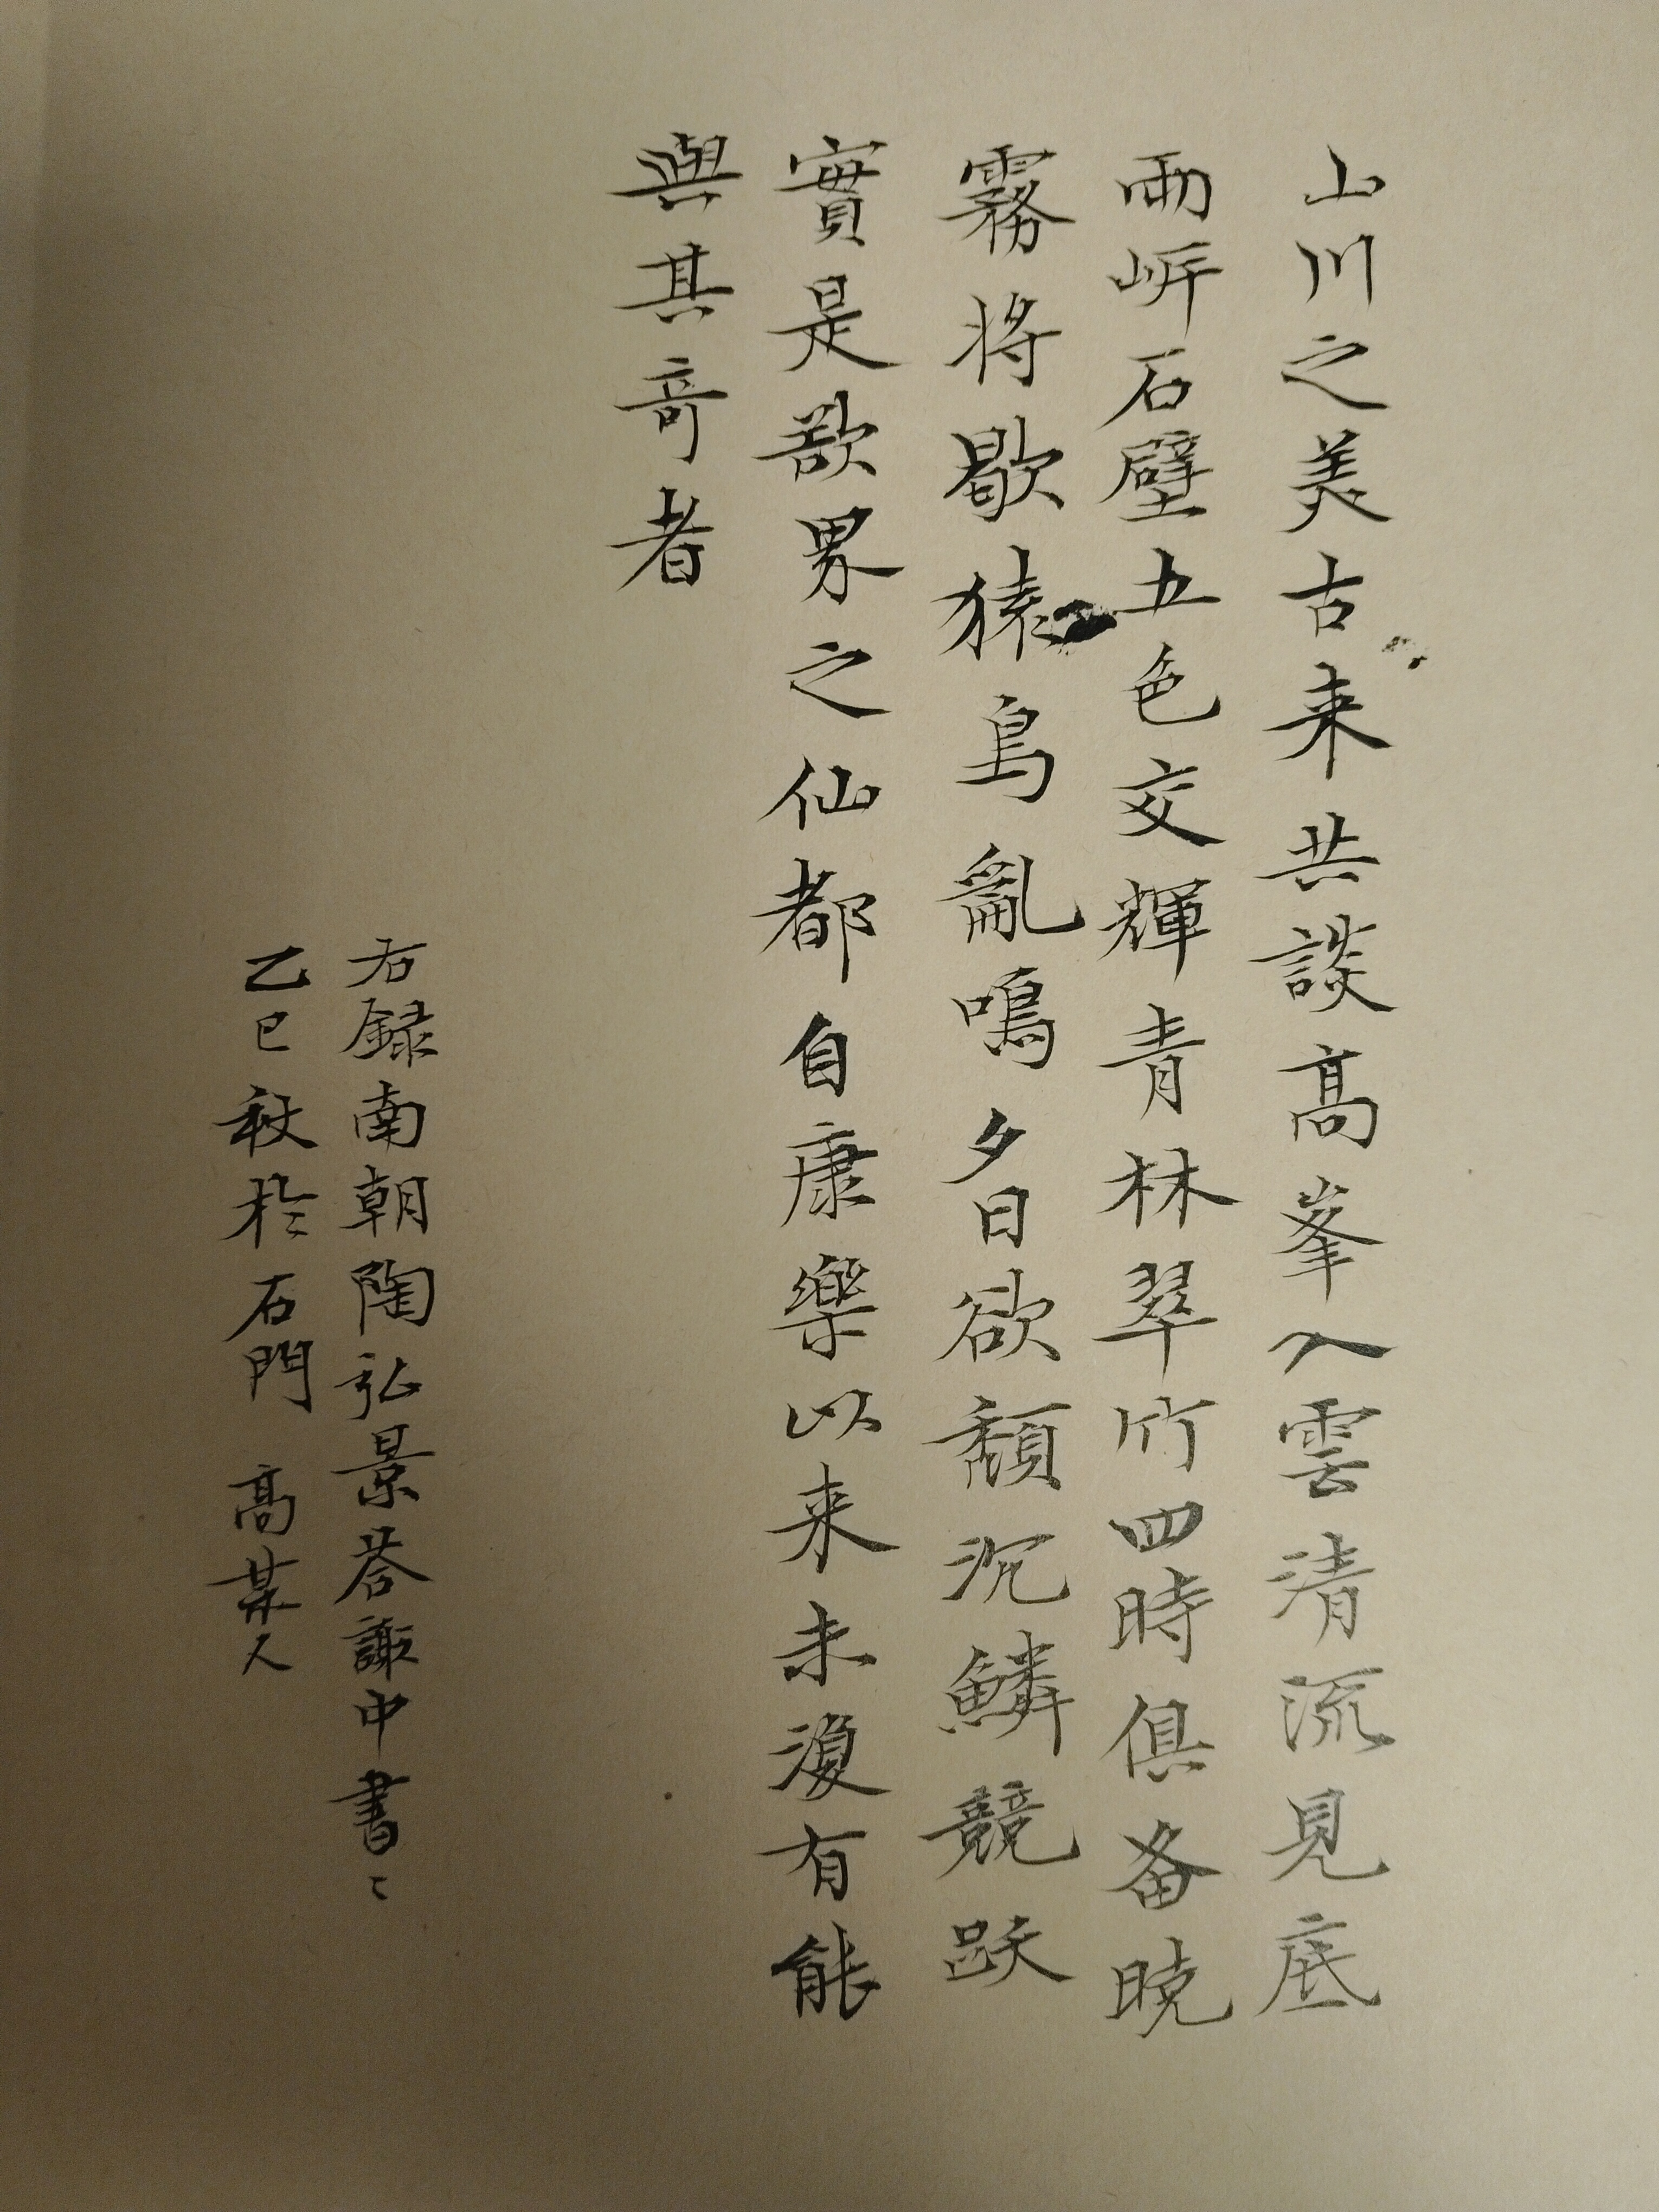 山川之美古来共談高峯入雲清流見底
兩岍石壁五色交輝青林翠竹四時俱备晓
霧将歇猿鳥亂鳴夕日欲頹沉鱗競跃
實是欲界之仙都自康樂以来未復有能
與其奇者
右録南朝陶弘景荅謝中書書
乙巳秋於石門 高某人